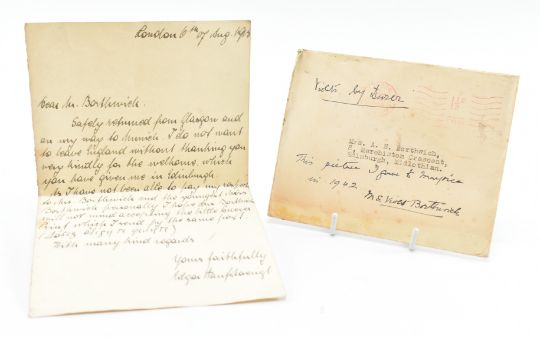 London 6th of Aug.
Dear Mr. Borthwick.
Safely returned from Glasgow and
on my way to Munich I do not want
to leave England without thanking you
very kindly for the welcome, which
you have given me in Edinburgh.
As I have not been able to pay my respect
to Mrs Borthwick and the younger
Borthwick personally I hope Mrs Borthwick
will not mind accepting the little
Print which I send by the same post
With many kind regards
Yours faithfully
Edgar Hanfstaengl
by Dürer
Mrs. A. E. Borthwick,
Merchiston Crescent,
Edinburgh, Midlothian.
This picture I gave to Marjorie
in 1942
Borthwick